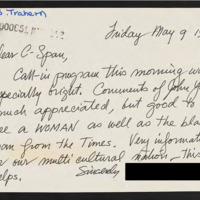 Trahern
Friday May 9
ear C-Span,
Call-in program this morning w
specially bright. Comments of John
much appreciated, but good to
ee a WOMAN as well as the bla
an from the Times. Very informati
r our multi cultural nation - this
elps. Sincerely